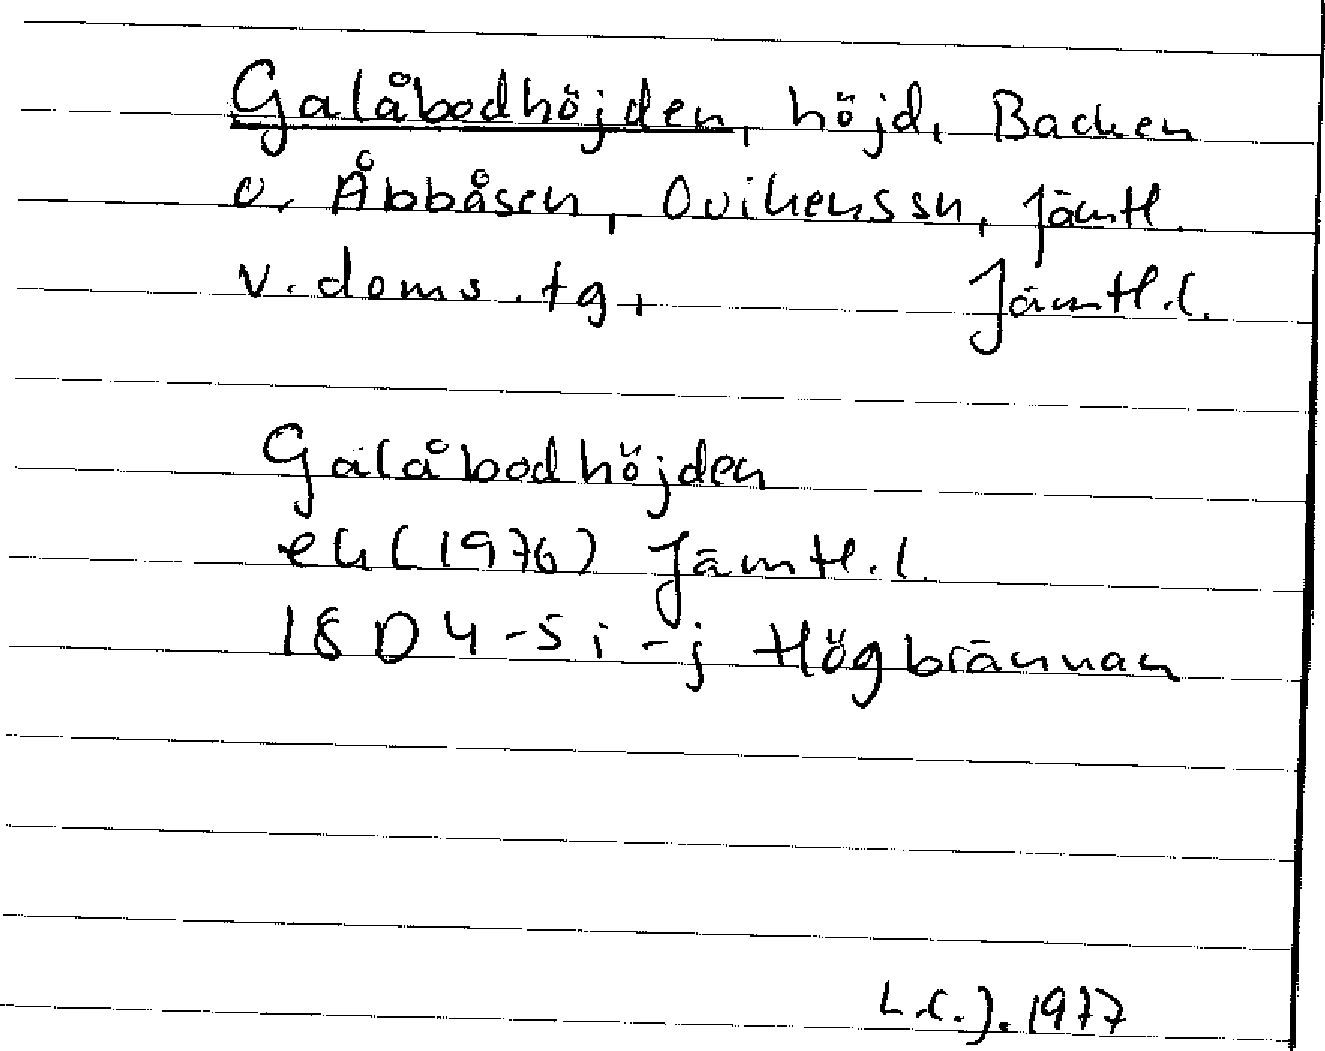 Galåbodhöjden, höjd, Backen
o. Åbbåsen, Ovikenssn, Jämtl.
v. doms.tg, Jämtl.l.
Galåbodhöjden
ek (1976) Jämtl.l.
18 D 4-5 i-j Högbrännan
L.C.J. 1977